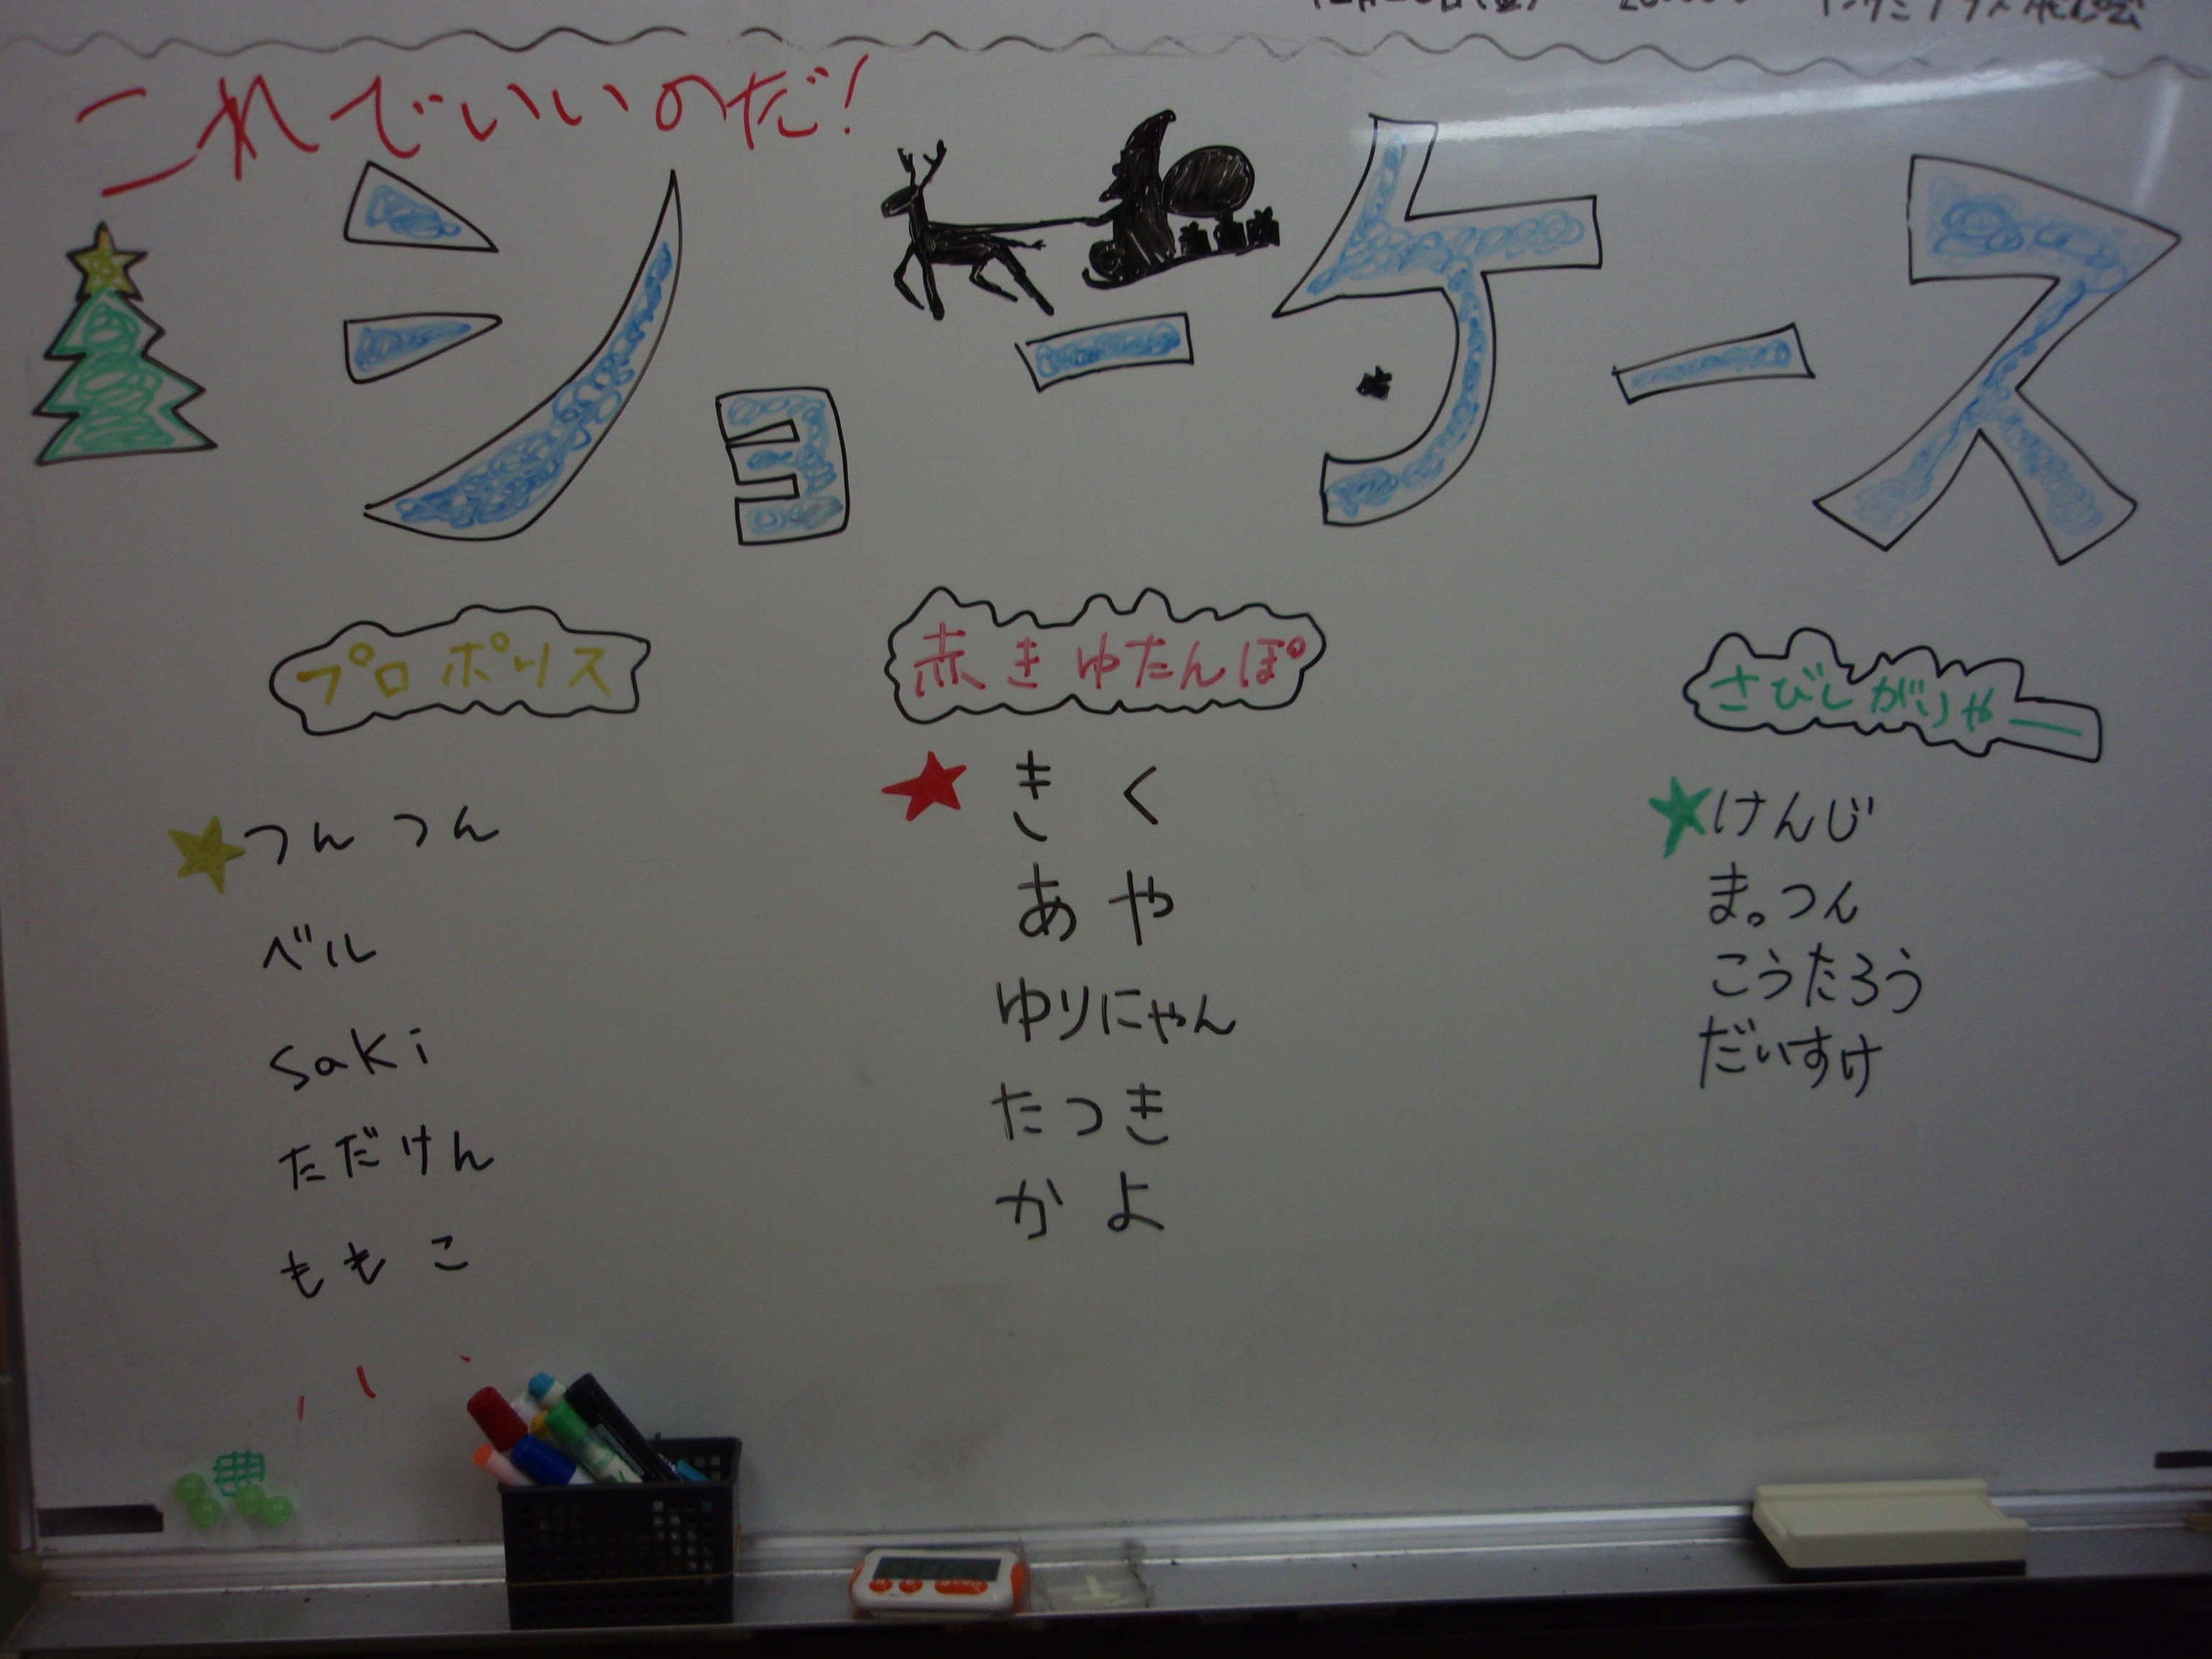 これでいいのだ!
ショーケース
プロポリス
つんつん
ベル
Saki
ただけん
ももこ
赤きゆたんぽ
きく
あや
ゆりにゃん
たつき
かよ
さびしがりやー
けんじ
ま。つん
こうたろう
だいすけ